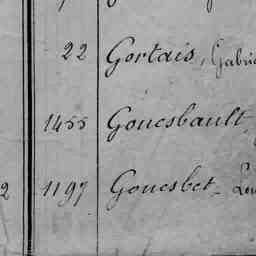 22 Gortais, Gabri
1455 Gouesbault,
2 1197 Gouesbet, Lou